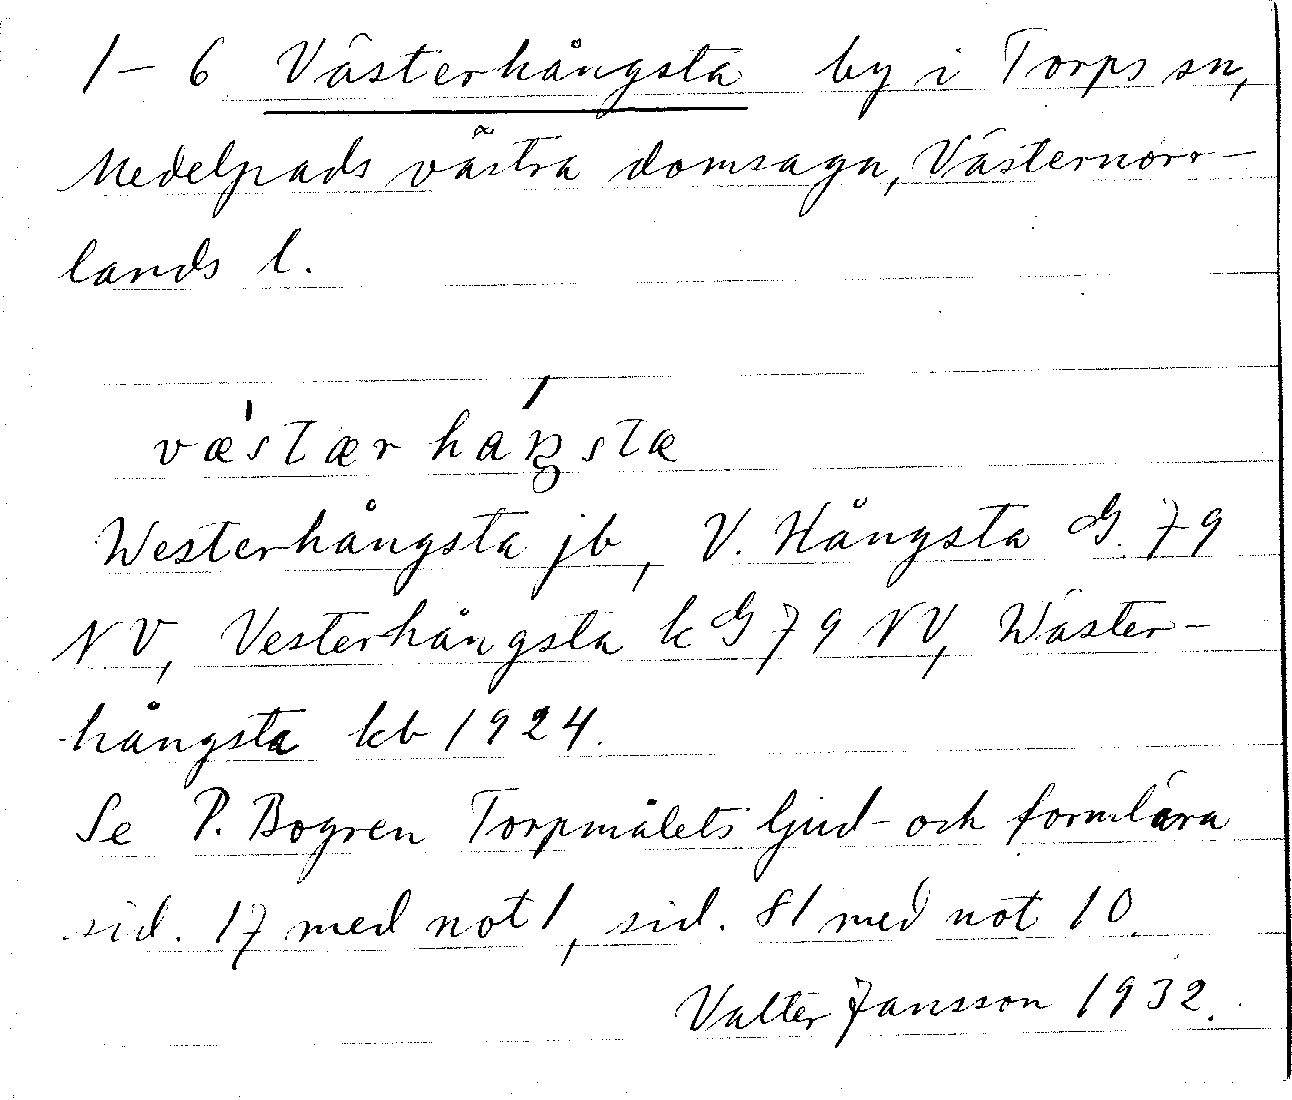 1–6 Västerhångsta by i Torps sn,
Medelpads västra domsaga, Västernorr-
lands l.
væ̍stær háŋsta
Westerhångsta jb, V. Hångsta G. 79
NV, Vesterhångsta k G 79 NV, Wäster-
hångsta kb 1924.
Se P. Bogren Torpmålets ljud- och formlära
sid. 17 med not 1, sid. 81 med not 10.
Valter Jansson 1932.